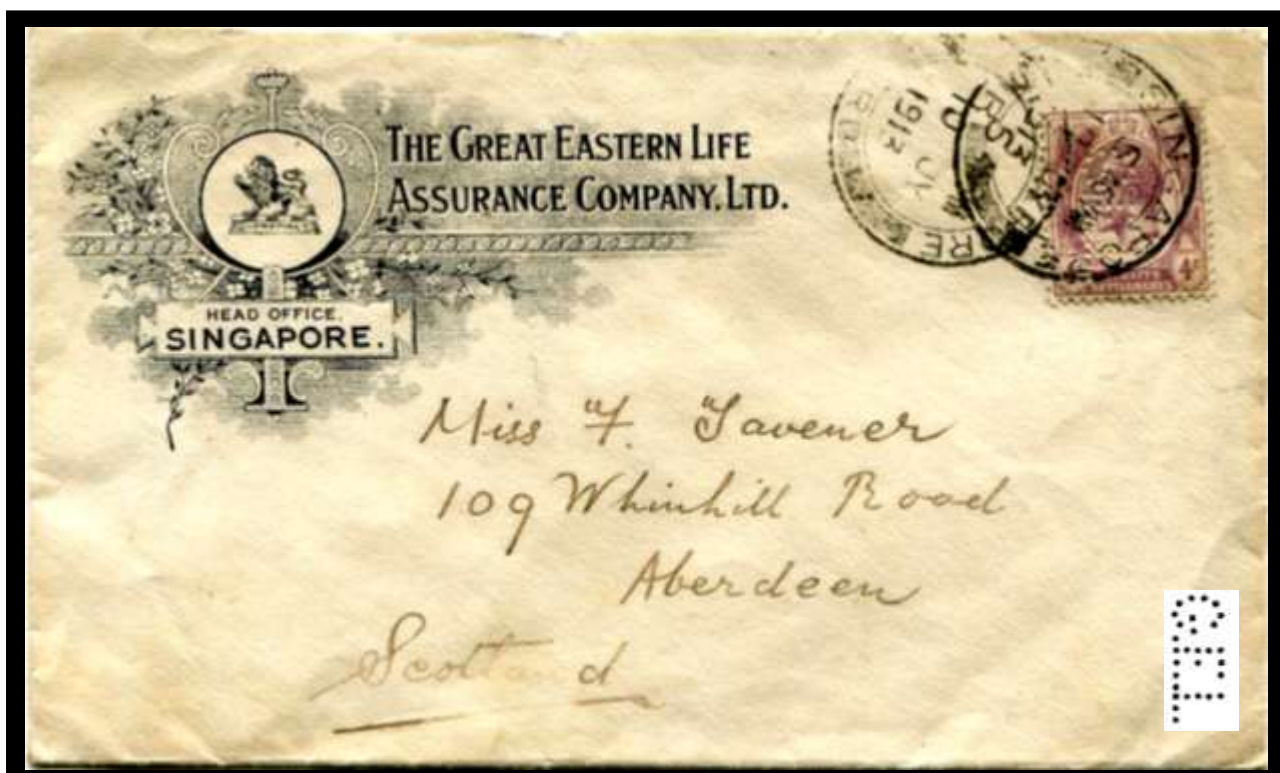 THE GREAT EASTERN LIFE
ASSURANCE COMPANY, LTD.
HEAD OFFICE.
SINGAPORE.
SINGAPO
1913
JY
RE
4
SETTLEMENTS
Miss F. Tavener
109 Whinhill Road
Aberdeen
Scotland